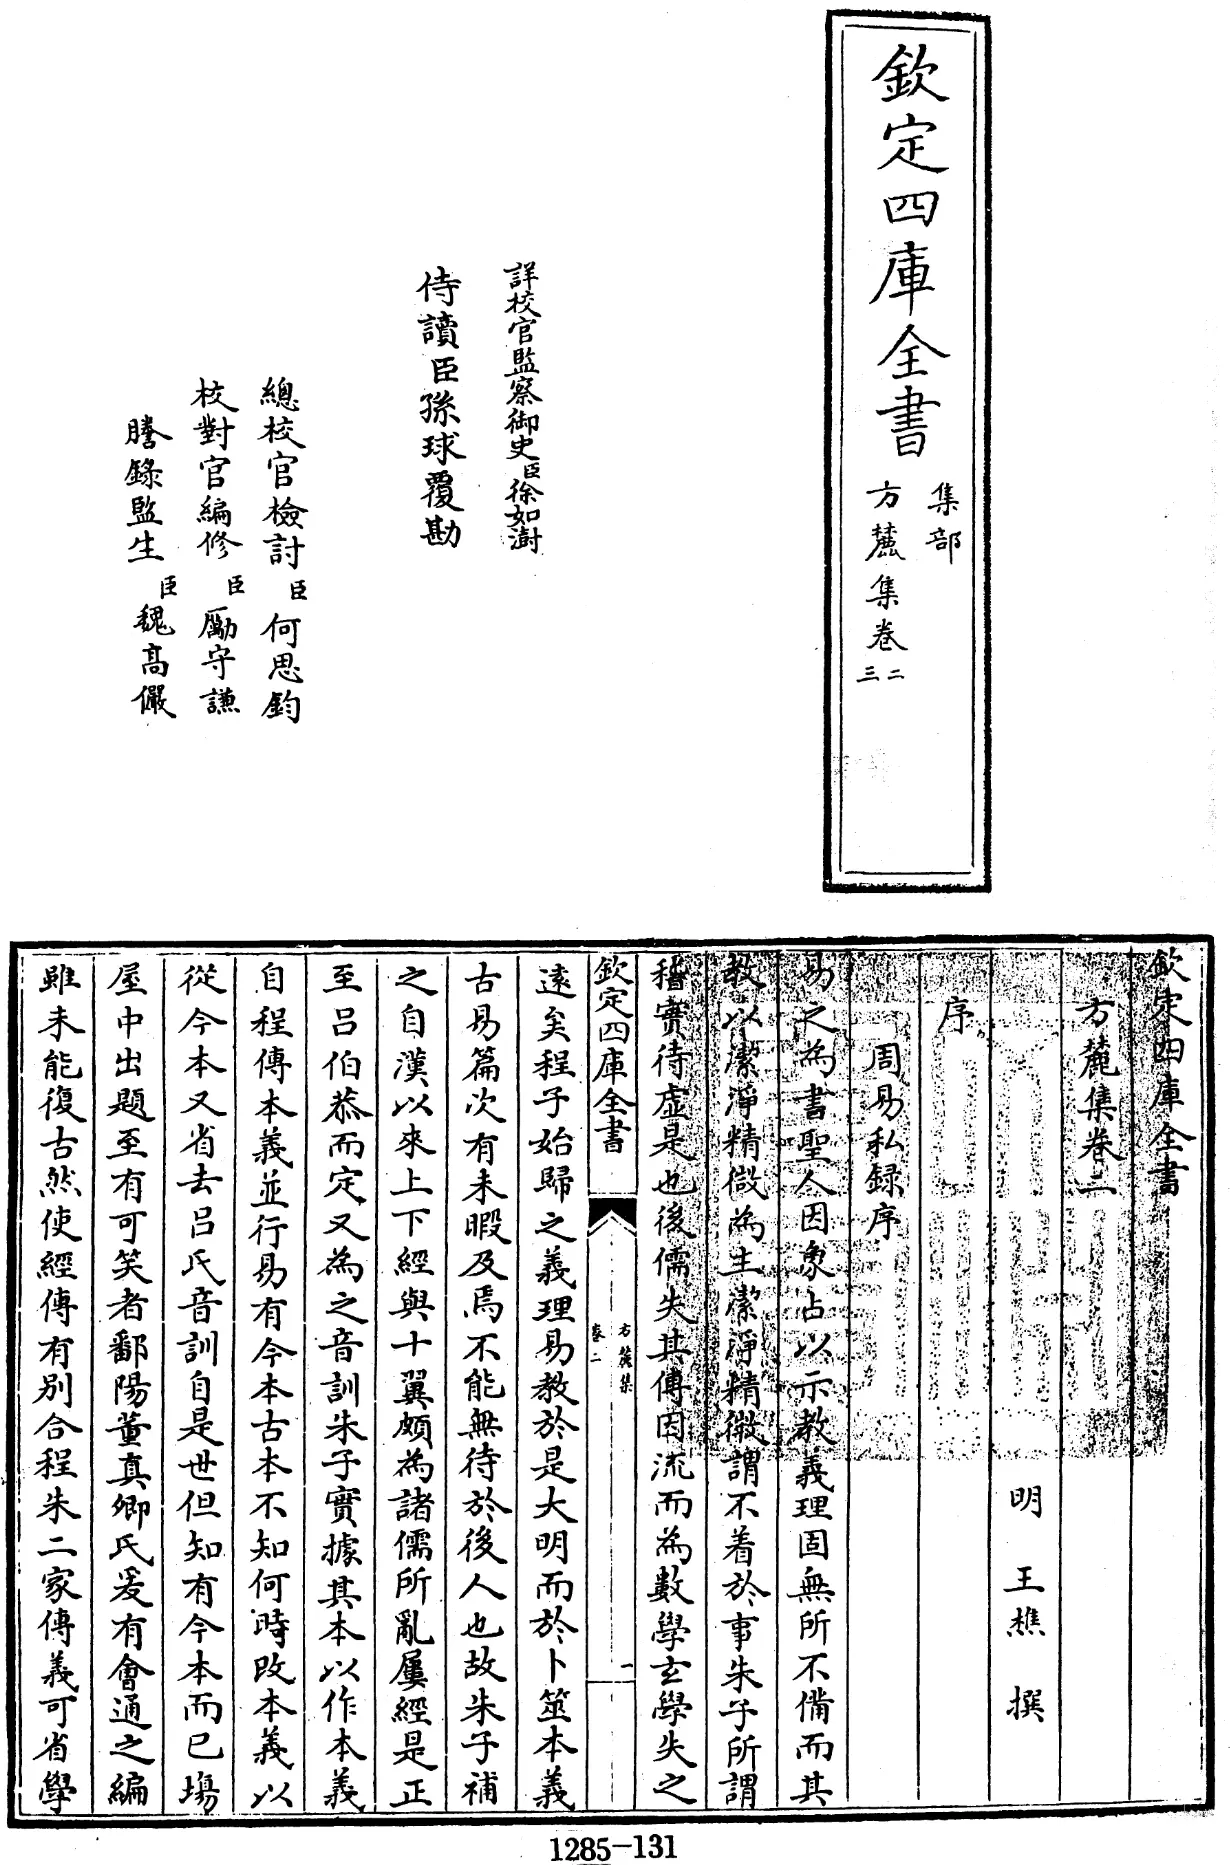 欽定四庫全書
集部
方麓集卷二
三
詳校官監察御史臣徐如澍
侍讀臣孫球覆勘
總校官檢討臣何思鈞
校對官編修臣勵守謙
謄錄監生臣魏高儼
欽定四庫全書
方麓集卷二
明王樵撰
序
周易私録序
易之為書聖人因象占以示教義理固無所不備而其
教以潔淨精微為主潔淨精微謂不着於事朱子所謂
稽實待虛是也後儒失其傳因流而為數學玄學失之
欽定四庫全書
方麓集
卷二
一
遠矣程子始歸之義理易教於是大明而於卜筮本義
古易篇次有未暇及焉不能無待於後人也故朱子補
之自漢以來上下經與十翼頗為諸儒所亂屢經是正
至呂伯恭而定又為之音訓朱子實據其本以作本義
自程傳本義並行易有今本古本不知何時改本義以
從今本又省去呂氏音訓自是世但知有今本而已塲
屋中出題至有可笑者鄱陽董真卿氏爰有會通之編
雖未能復古然使經傳有別合程朱二家傳義可省學
1285-131